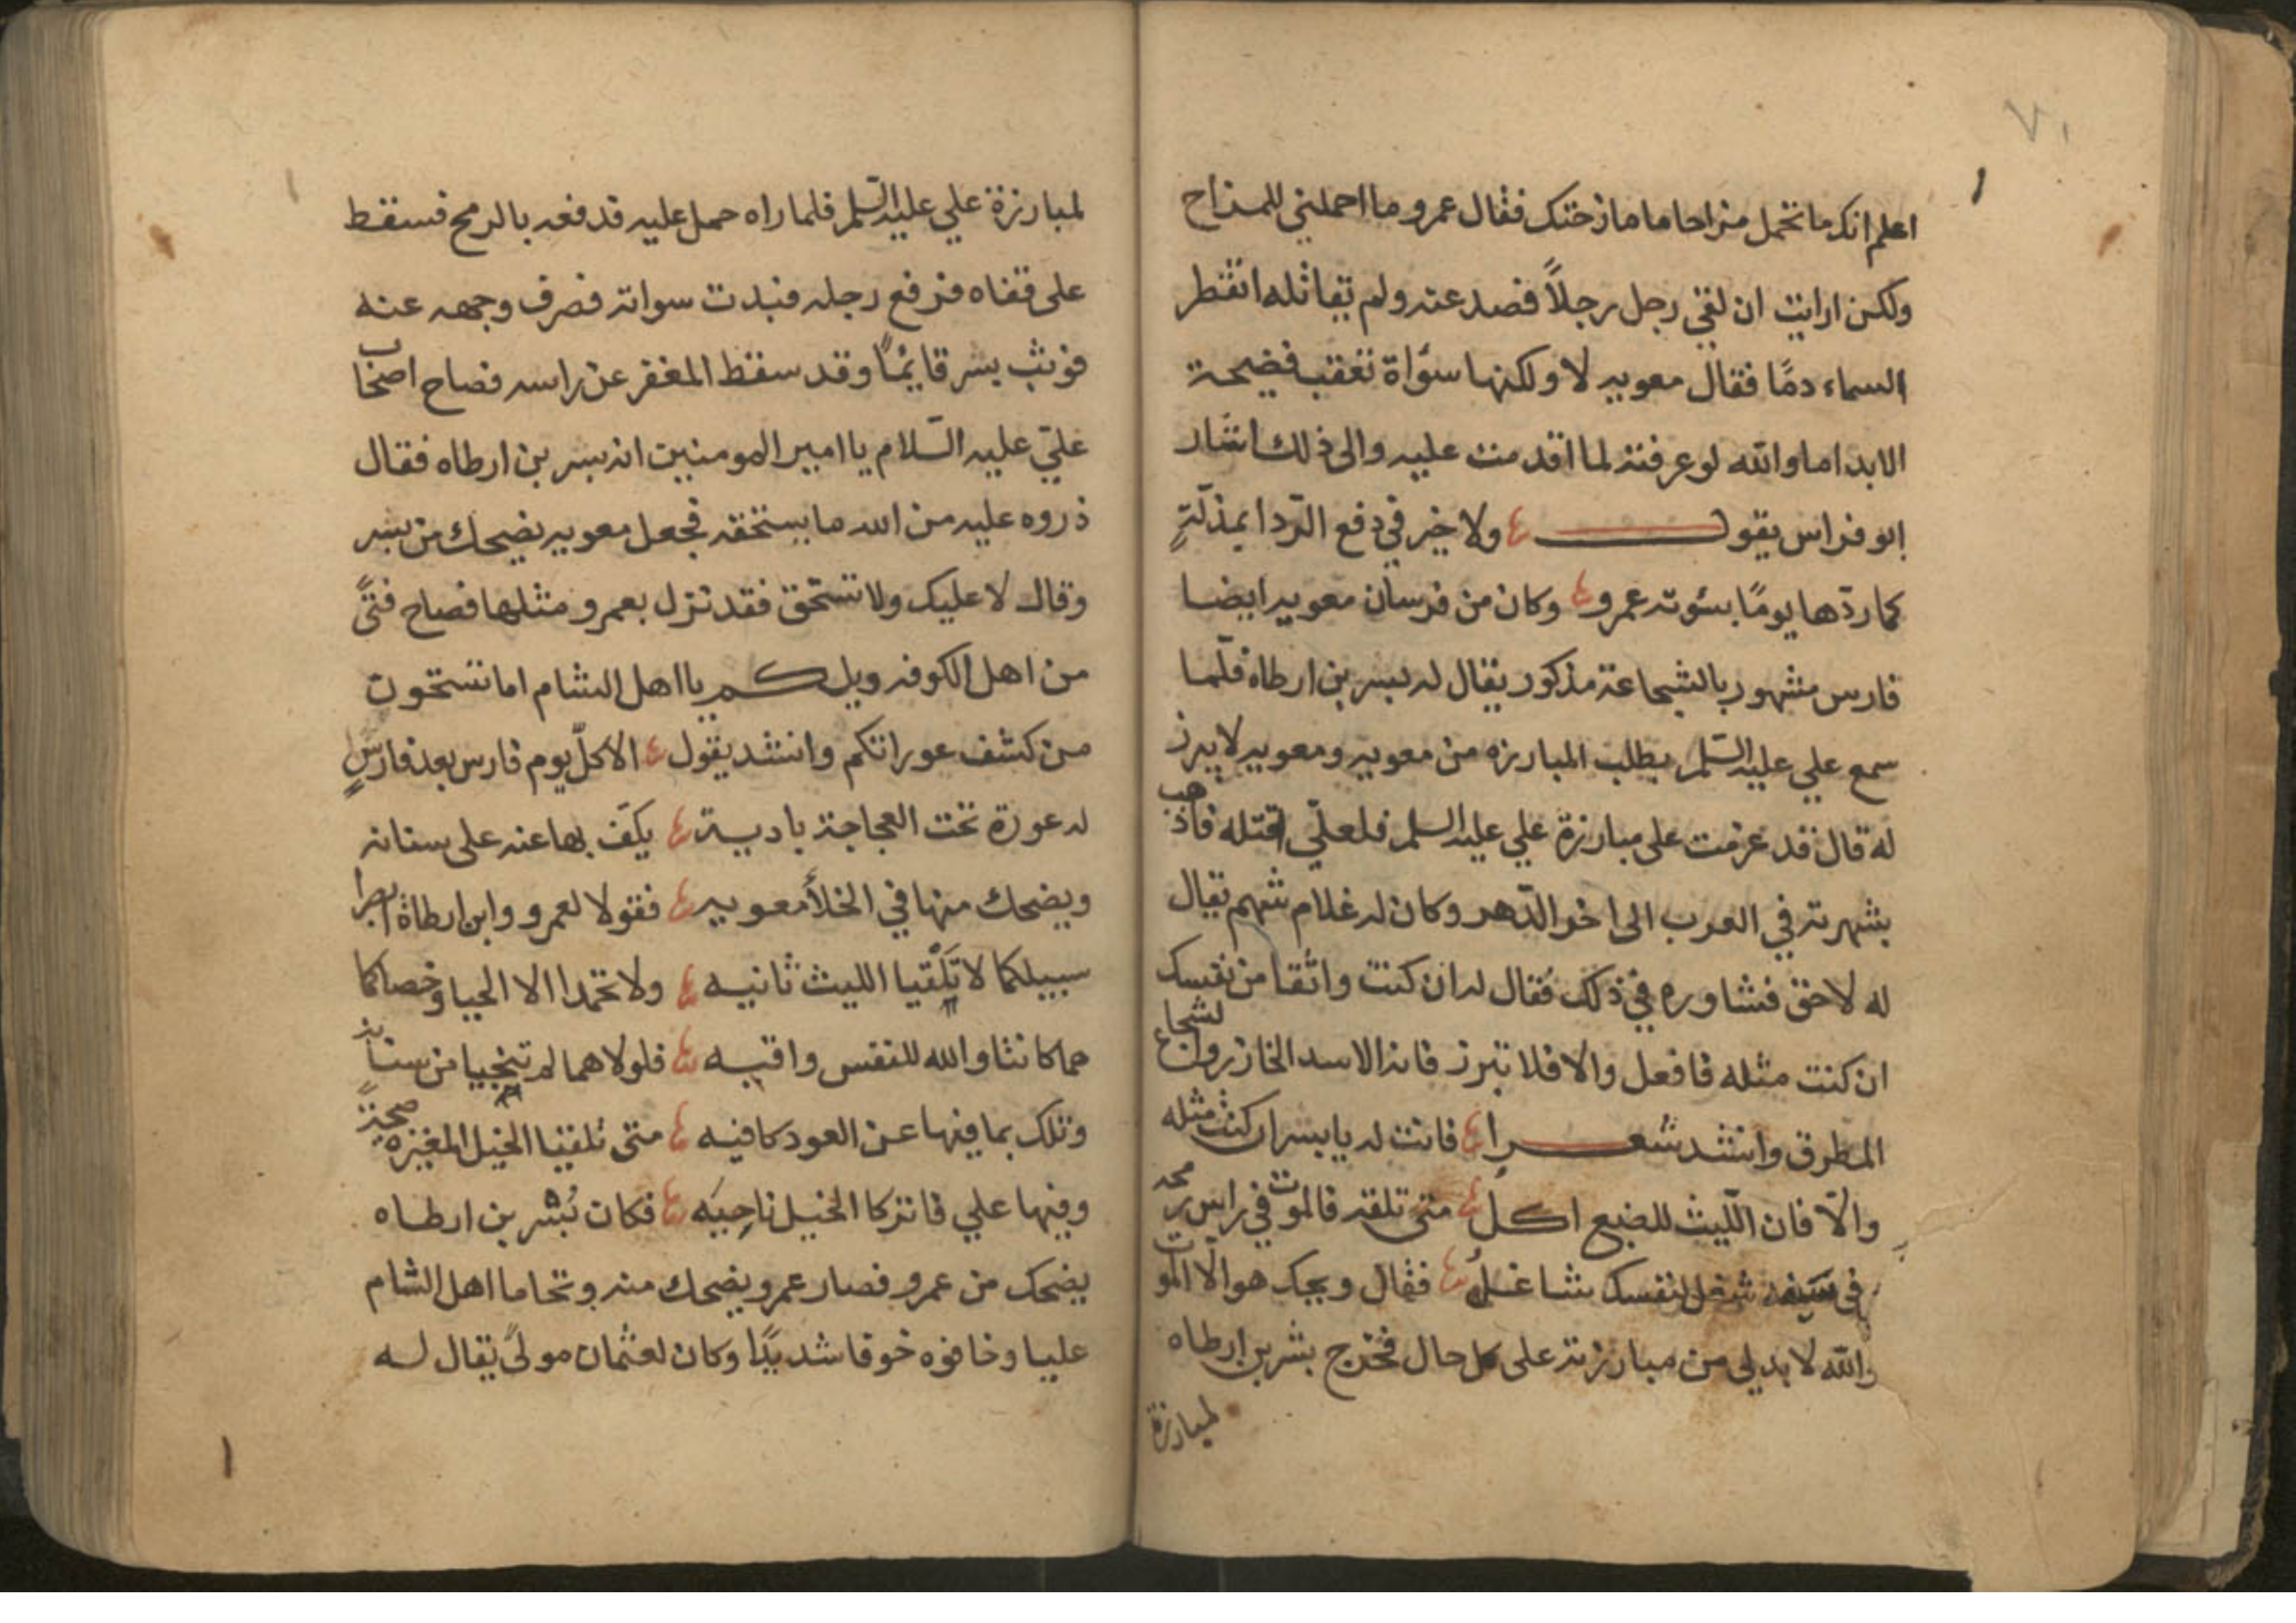 ٧١
اعلم انك ما تحمل مزاحا ما مازحتك فقال عمرو ما احملني للمزاح
ولكن ارايت ان لقي رجل رجلاً فصد عنه ولم يقاتله اتقطر
السماء دمًا فقال معويه لا ولكنها سوأة تعقب فضيحة
الابد اما والله لو عرفته لما اقدمت عليه والى ذلك اشار
ابو فراس يقول ولا خير في دفع الردا بمذلّةٍ
كما ردّها يومًا بسوته عمرو وكان من فرسان معويه ايضا
فارس مشهور بالشجاعة مذكور يقال له بسر بن ارطاه فلمّا
سمع علي عليه السّلم يطلب المبارزه من معويه ومعويه لا يبرز
له قال قد عزمت على مبارزة علي عليه السلم فلعلّي اقتله فاذهب
بشهرته في العرب الى اخر الدّهر وكان له غلام شهم يقال
له لاحق فشاوره في ذلك فقال له ان كنت واثقا من نفسك
ان كنت مثله فافعل والا فلا تبرز فانه الاسد الخازر والشجاع
المطرق وانشد شعرا فانت له يا بسر ان كنت مثله
والّا فان اللّيث للضبع اكلُ متى تلقه فالموت في راس رمحه
في سيفه شغل لنفسك شاغلُ فقال ويحك هو الّا الموت
والله لا بد لي من مبارزته على كل حال فخرج بشر بن ارطاه
لمبارزة
لمبارزة علي عليه السّلم فلما راه حمل عليه قدفعه بالرمح فسقط
على قفاه فرفع رجله فبدت سواته فصرف وجهه عنه
فوثب بسر قايمًا وقد سقط المغفر عن راسه فصاح اصحاب
عليّ عليه السّلام يا امير المومنين انه بسر بن ارطاه فقال
ذروه عليه من الله ما يستحقه فجعل معويه يضحك من بسر
وقال لا عليك ولا تستحق فقد نزل بعمرو مثلها فصاح فتًى
من اهل الكوفه ويلكم يا اهل الشام اما تستحون
من كشف عوراتكم وانشد يقول الا كلّ يوم فارس بعد فارسٍ
له عورة تحت العجاجة باديه يكفّ بها عنه على سنانه
ويضحك منها في الخلأ معويه فقولا لعمرو وابن ارطاة ابصرا
سبيلكما لا تلقيا الليث ثانيه ولا تحمدا الا الحيا وخصاكما
هما كانتا والله للنفس واقيه فلولاهما لم تنجيا من سنانه
وتلك بما فيها عن العود كافيه متى تلقيا الخيل المغيره صبحةً
وفيها علي فاتركا الخيل ناحِيَه فكان بُشر بن ارطاه
يضحك من عمرو فصار عمرو يضحك منه وتحاما اهل الشام
عليا وخافوه خوفا شديدًا وكان لعثمان مولىً يقال له